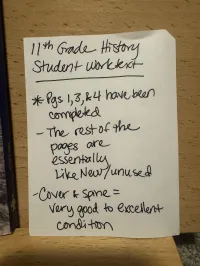 11th Grade History
Student Worktext
* Pgs 1,3,&4 have been
completed
- The rest of the
pages are
essentially
Like New/unused
- Cover & spine =
very good to excellent
condition